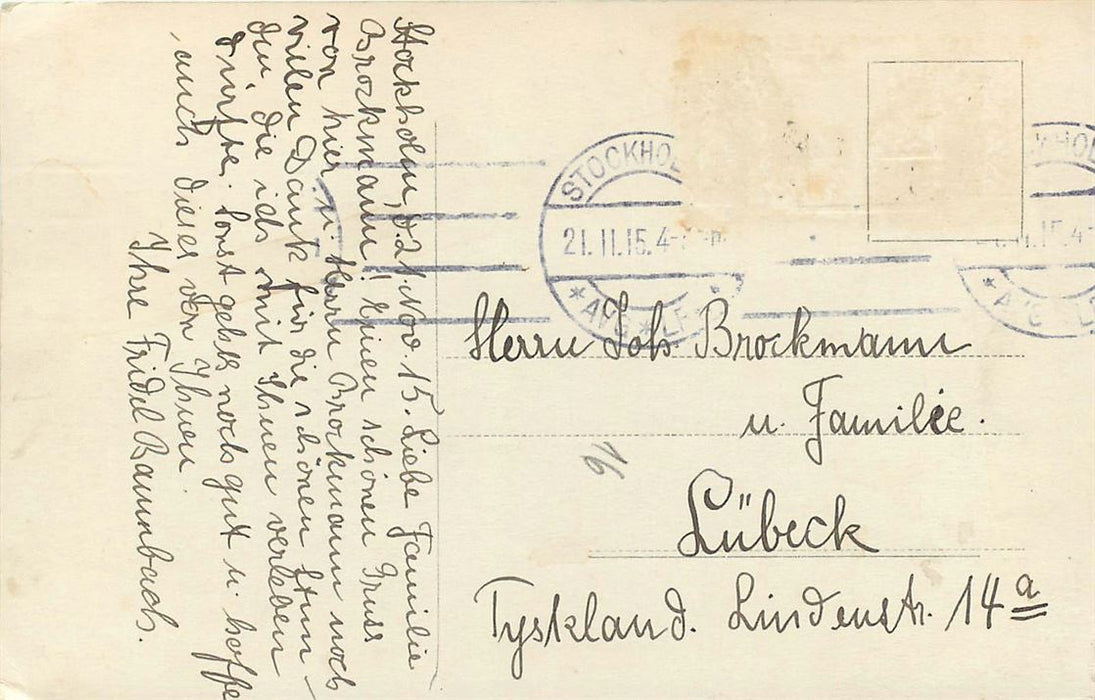 Stockholm, d. 21. Nov. 15. Liebe Familie
Brockmann! Einen schönen Gruss
von hier u. Herrn Brockmann noch
vielen Dank für die schönen Stun-
den, die ich mit Ihnen verleben
durfte. Sonst geht's noch gut u. hoffe
auch dieses von Ihnen.
Ihre Fridel Baumbach.
STOCKHOL
21.11.15.4-
*AVG*LF*
STOCKHOL
11.15.4-
*AVG LF
Herrn Joh. Brockmann
u. Familie.
16
Lübeck
Tyskland. Lindenstr. 14a